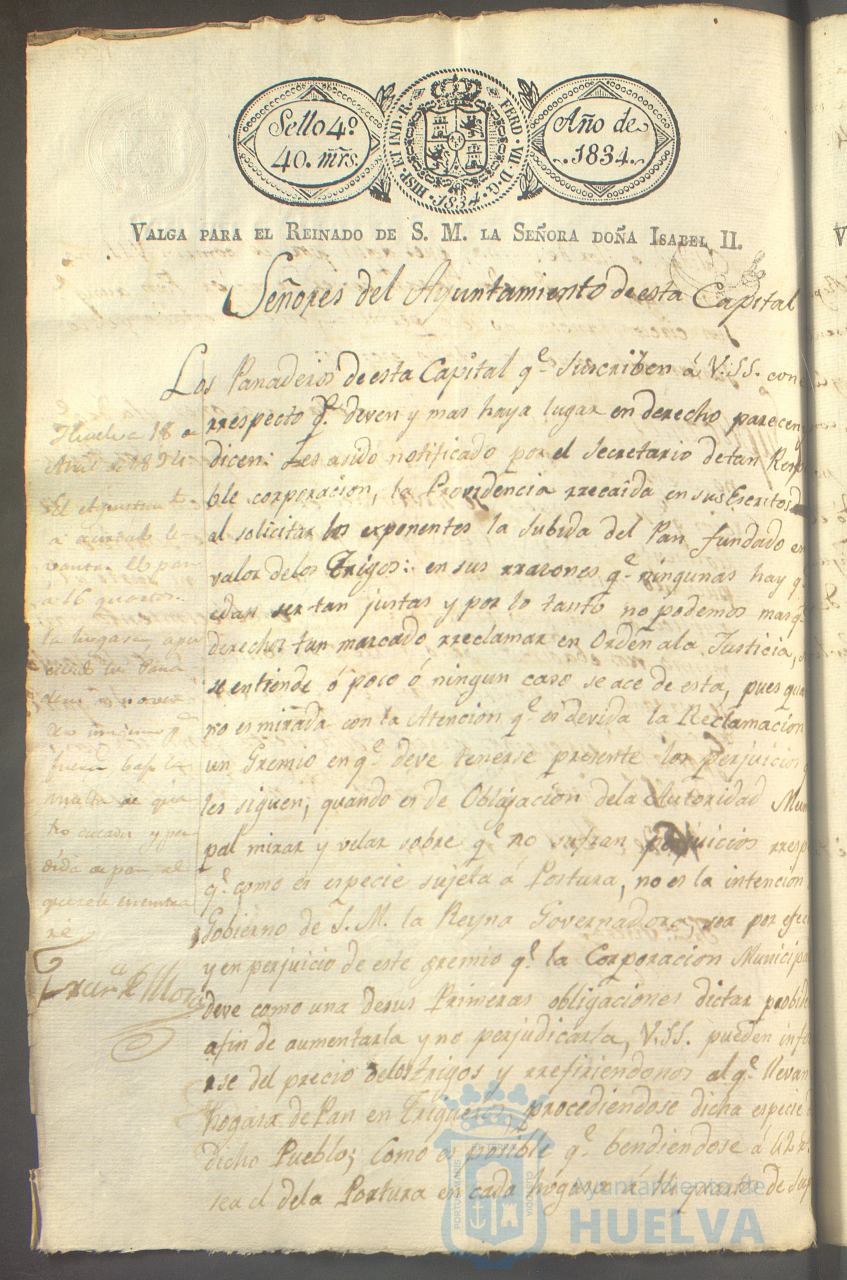 Sello 4.º
40. mrs.
HISP. ET IND. R.
FERD. VII. D. G.
1834
Año de
1834.
VALGA PARA EL REINADO DE S. M. LA SEÑORA DOÑA ISABEL II.
Señores del Ayuntamiento de esta Capital
Los Panaderos de esta Capital q.e Suscriben á V.SS. con
rrespecto q.e deven y mas haya lugar en derecho parecen y
dicen: Les asido notificado por el Secretario de tan Resp
ble corporacion, la Providencia rrecaida en sus Escritos
al solicitar los exponentes la Subida del Pan fundado en
valor delos Trigos: en sus rrazones q.e ningunas hay q
edan ser tan justas y por lo tanto no podemos mas q.e
derecho tan marcado rreclamar en Orden ala Justicia,
se entiende ó poco ó ningun caso se ace de esta, pues qua
no es mirada con la Atencion q.e es devida la Reclamacion
un Gremio en q.e deve tenerse presente los perjuicios
les siguen; quando es de Obligacion dela Autoridad Mun
pal mirar y velar sobre q.e no sufran perjuicios rresp
q.e como es especie sujeta á Postura, no es la intencion
Gobierno de S. M. la Reyna Governadora, sea por efec
y en perjuicio de este gremio q.e la Corporacion Municipa
deve como una desus Primeras obligaciones dictar probide
afin de aumentarla y no perjudicarla, V.SS. pueden info
rse del precio delos Trigos y rrefiriendonos al q.e llevan
hogaza de Pan en Trigueros, procediendose dicha especie
dicho Pueblo; Como es posible q.e bendiendose á 42 r
sea el dela Postura en cada hogaza á quartos de Sup
Huelva 18 e
Abril de 1834
El Ayuntam.to
a acordado le
vantar el pan
a 16 quartos
la hogaza, aper
cividos los Pana
deros
fuera bajo la
multa de qua
tro ducados y per
dida de pan al
que se le encontra
re
Ayuntamiento de
HUELVA